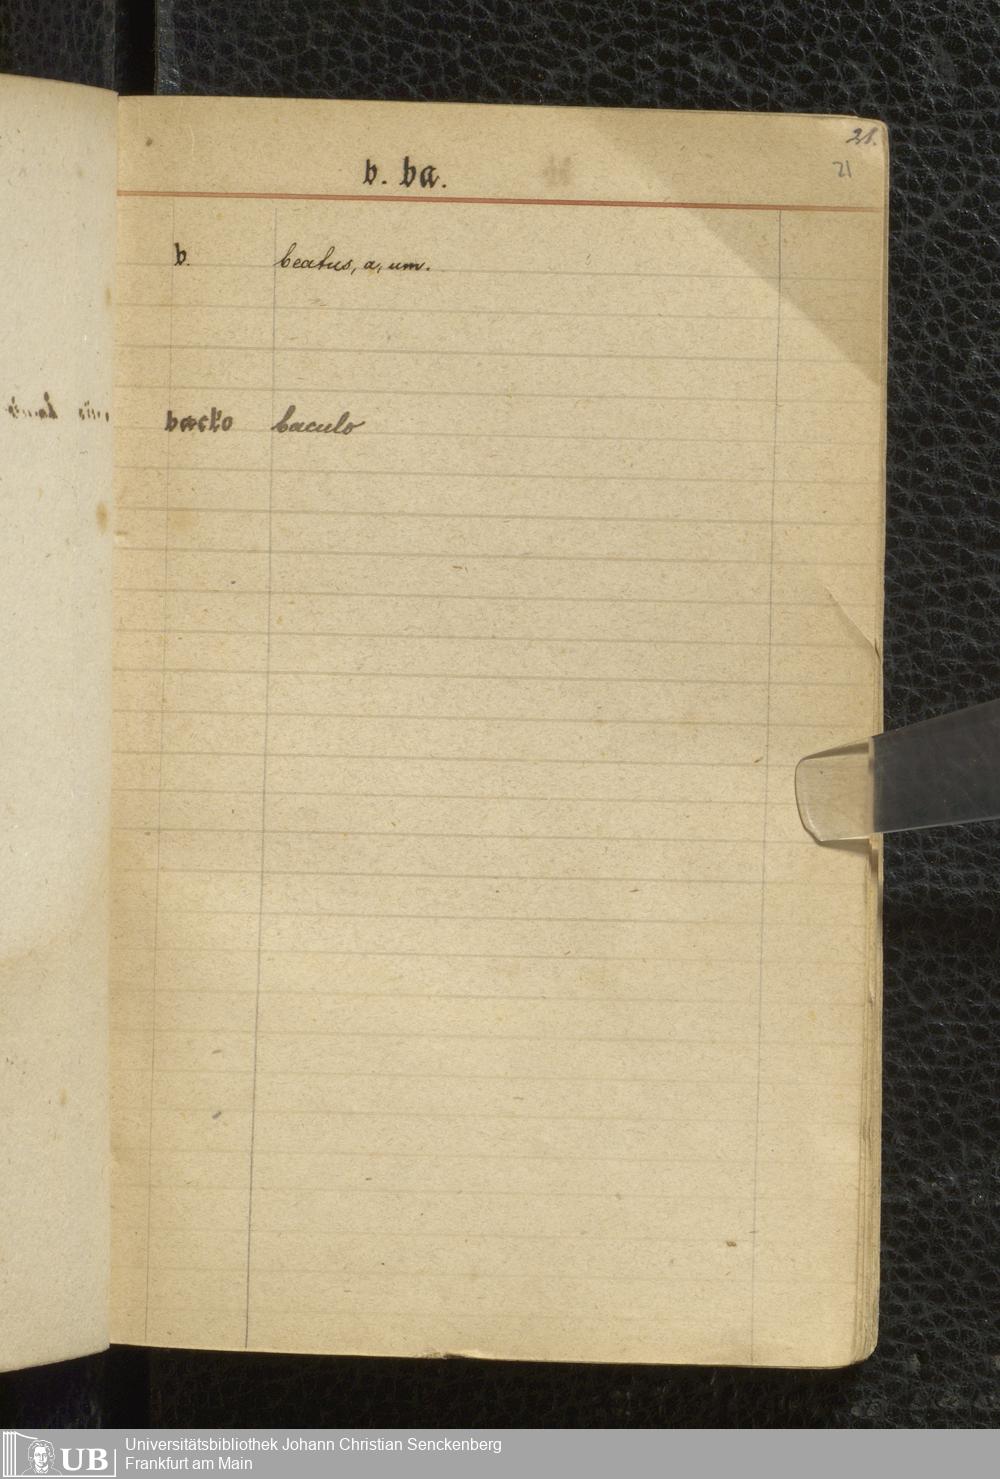 21.
21
b. ba.
b. beatus, a, um.
bacło baculo
UB Universitätsbibliothek Johann Christian Senckenberg
Frankfurt am Main